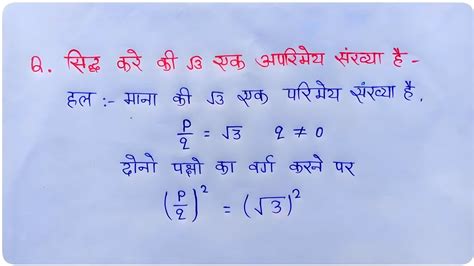 Q. सिद्ध करे की √3 एक अपरिमेय संख्या है -
हल :- माना की √3 एक परिमेय संख्या है.
p/q = √3 q ≠ 0
दोनो पक्षो का वर्ग करने पर
(p/q)² = (√3)²